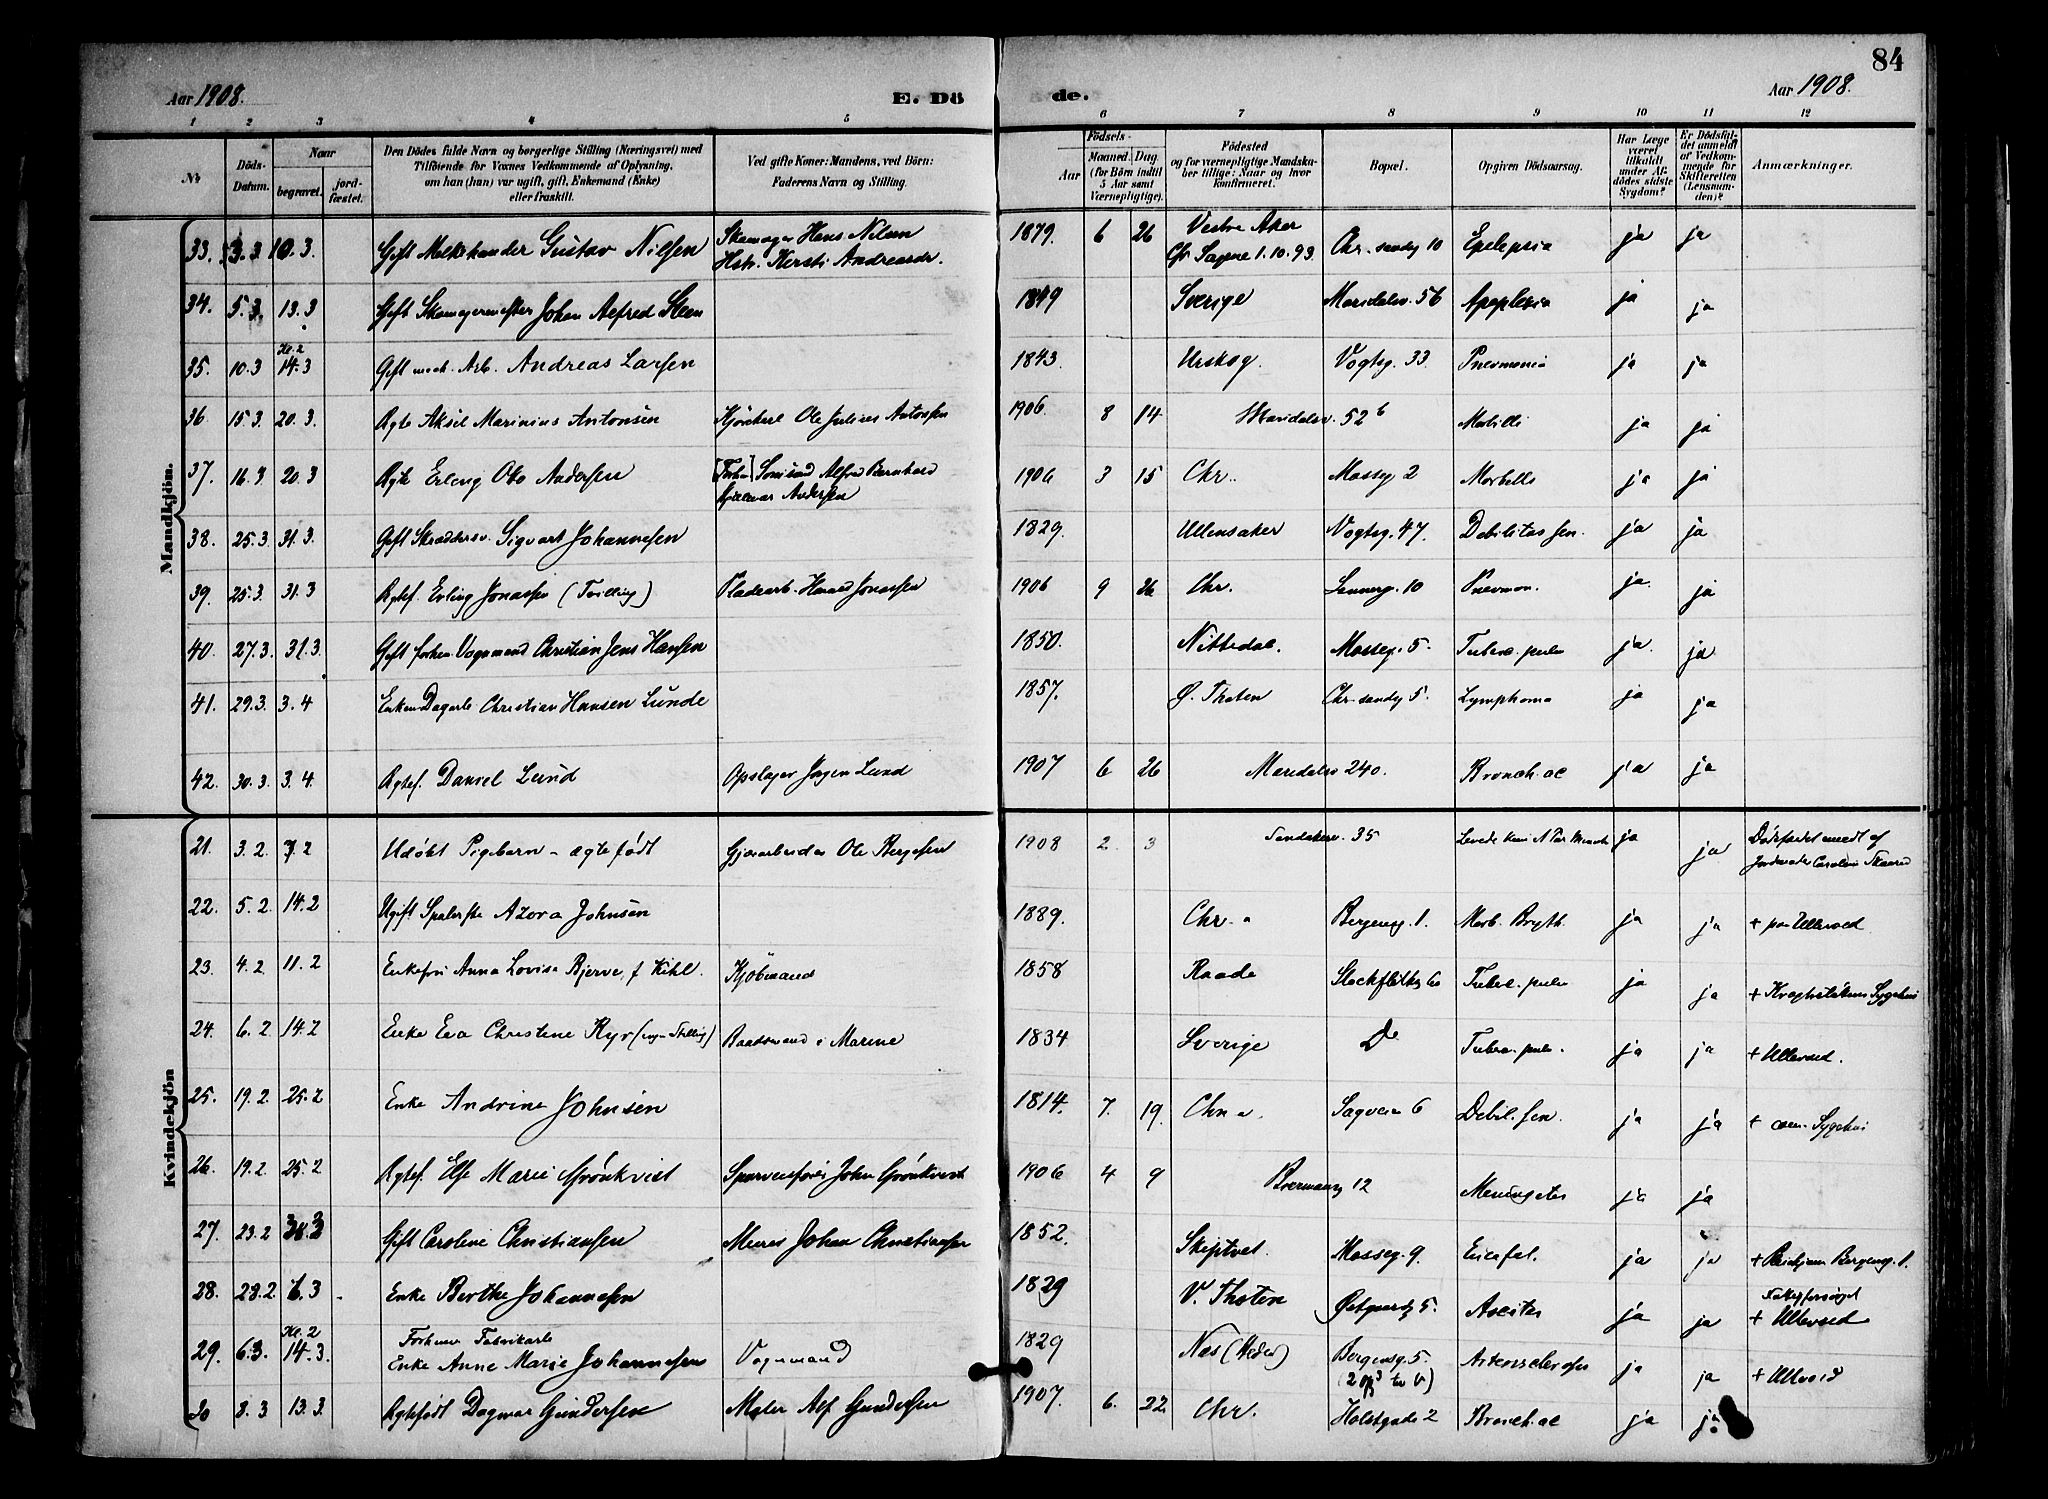 84
Aar 1908.
E. Dö
de.
Aar 1908.
1 2 3 4 5 6 7 8 9 10 11 12
Nr
Döds-Datum.
Naar
begravet.
jord-fæstet.
Den Dödes fulde Navn og borgerlige Stilling (Næringsvei) med
Tilföiende for Voxnes Vedkommende af Oplysning,
om han (hun) var ugift, gift, Enkemand (Enke)
eller fraskilt.
Ved gifte Koner: Mandens, ved Börn:
Faderens Navn og Stilling.
Födsels-
Aar
Maaned. Dag.
(for Börn indtil
5 Aar samt
Værnepligtige).
Födested
og for værnepligtige Mandska-
ber tillige: Naar og hvor
konfirmeret.
Bopæl.
Opgiven Dödsaarsag.
Har Læge
været
tilkaldt
under Af-
dödes sidste
Sygdom?
Er Dödsfal-
det anmeldt
af Vedkom-
mende for
Skifteretten
(Lensman-
den)?
Anmærkninger.
Mandkjön.
33. 3.3 10.3. Gift Melkehandler Gustav Nilsen Skomager Hans Nilsen 1879. 6 26 Vestre Aker Chr.sandsg 10 Epilepsia ja ja
Hstr. Kersti Andreasdr. Sagene 1.10.93.
34. 5.3. 13.3 Gift Skomagermester Johan Alfred Steen 1849 Sverige Maridalsv. 56 Apoplexia ja ja
35. 10.3 Kl. 2 14.3 Gift mek. Arb. Andreas Larsen 1843. Urskog. Vogtsg. 33. Pneumonia ja ja
36. 15.3. 20.3. Ægte Aksel Marinius Antonsen Ole Julius Antonsen 1906. 8 14 Maridalsv. 52 b Morbilli ja ja
37. 16.3. 20.3 Ægte Erling Oto Andersen Alfred Bernhard 1906 3 15 Chr. Mosseg 2 Morbilli ja ja
Hjalmar Andersen
38. 25.3. 31.3. Gift Skræddersv. Sigvart Johannesen 1829. Ullensaker Vogtsg. 47. Debilitas sen. ja ja
39. 25.3. 31.3 Ægtef. Erling Jonassen (Tvilling) Pladearb. Harald Jonassen 1906 9 26 Chr. 10 Pneumon. ja ja
40. 27.3. 31.3. Gift forhen. Vognmand Christian Jens Hansen 1850. Nittedal. Mosseg. 5. Tuberc. pulm ja ja
41. 29.3. 3.4 Enkem. Dagarb. Christian Hansen Lunde 1857. Ø. Thoten Chr.sandsg 5. Lymphoma ja ja
42. 30.3. 3.4. Ægtef. Daniel Lund Opslager Jørgen Lund 1907 6 26 Maridalsv 240. Bronch. ac ja ja
Kvindekjön
21. 3.2. 7.2 Udöbt Pigebarn - ægtefödt Ole Bergersen 1908 2. 3 Sandakerv. 35 Levede kun et Par Minutter ja ja Dødsfaldet meldt af
Jordmoder Caroline
22. 5.2. 14.2 Ugift Azora Johnsen 1889. Chr.a Bergensg. 1. Morb. Bryth. ja ja + paa Ullevold
23. 4.2 11.2 Enkefru Anna Lovise Bjerve, f Kihl. Kjöbmand 1858 Raade Tuberc. pulm ja ja + Sygehus
24. 6.2 14.2 Enke Eva Christene Ryr (ingen Stilling) Baadsmand i Marine 1834 Sverige Do Tuberc. pulm. ja ja + Ullevold.
25. 19.2. 25.2 Enke Andrine Johnsen 1814. 7. 19. Chr.a. Sagveien 6 Debil. sen. ja ja + Sygehus
26. 19.2. 25.2 Ægtef. Else Marie Grönkvist John Grönkvist 1906 4 9 12 Meningitis ja ja
27. 23.2 Gift Caroline Christiansen Murer Johan Christiansen 1852. Skiptvet. Mosseg. 9. ja ja + Bergensg. 1.
28. 28.2. 6.3 Enke Berthe Johannesen 1829 V. Thoten Østgaardsg 5. Ascites ja ja + Ullevold
29. 6.3. Kl. 2 14.3. Forhenv. Fabrikarb. Vognmand 1829 Nes (Hedm) Bergensg. 5. Arteriosclerose ja ja + Ullevold
Enke Anne Marie Johannesen
30 8.3 13.3. Ægtefödt Dagmar Gundersen Maler Alf Gundersen 1907. 6. 22. Chr. Holstgade 2 Bronch. ac ja ja